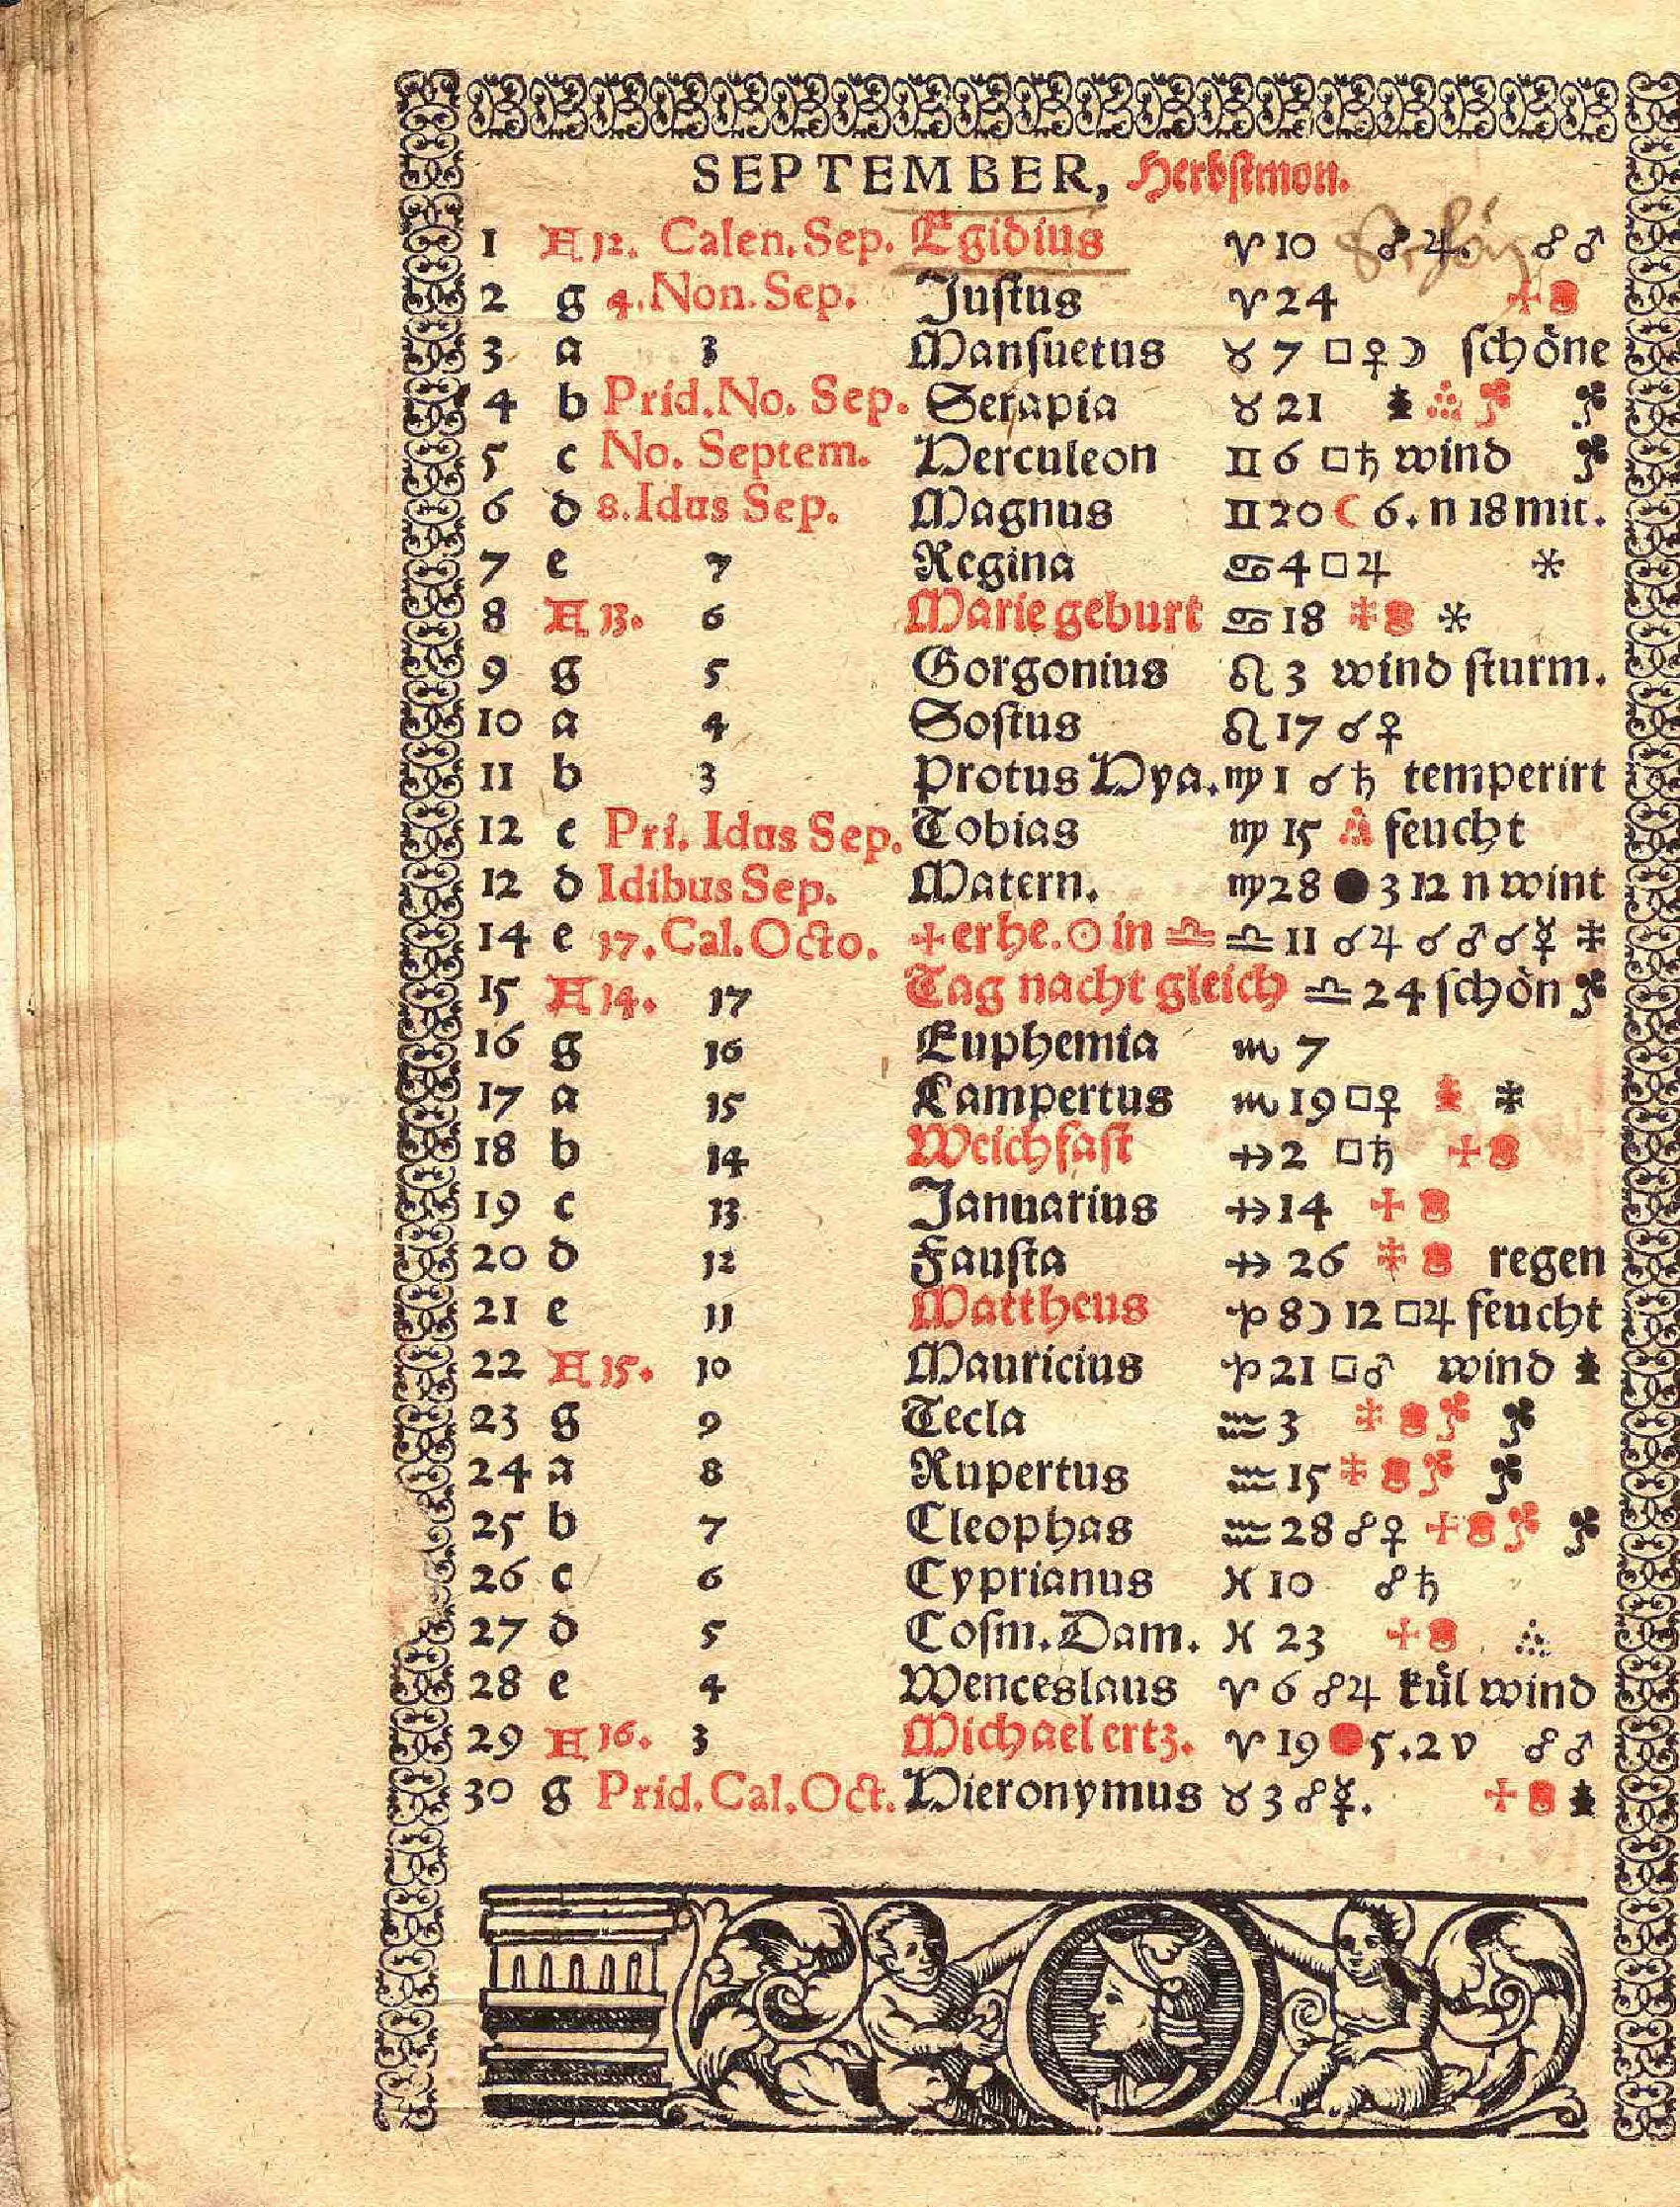 SEPTEMBER, Herbstmon.
1 A 12. Calen. Sep. Egidius ♈ 10 ☍ ♃. ☍ ♂
2 g 4. Non. Sep. Justus ♈ 24
3 a 3 Mansuetus ♉ 7 □ ♀ ☽ schöne
4 b Prid. No. Sep. Serapia ♉ 21
5 c No. Septem. Herculeon ♊ 6 □ ♄ wind
6 d 8. Idus Sep. Magnus ♊ 20 ☾ 6. n 18 mit.
7 e 7 Regina ♋ 4 □ ♃ *
8 A 13. 6 Marie geburt ♋ 18 *
9 g 5 Gorgonius ♌ 3 wind sturm.
10 a 4 Sostus ♌ 17 ☌ ♀
11 b 3 Protus Hya. ♍ 1 ☌ ♄ temperirt
12 c Pri. Idus Sep. Tobias ♍ 15 feucht
12 d Idibus Sep. Matern. ♍ 28 ● 3 12 n wint
14 e 17. Cal. Octo. + erhe. ☉ in ♎ ♎ 11 ☌ ♃ ☌ ♂ ☌ ☿
15 A 14. 17 Tag nacht gleich ♎ 24 schön
16 g 16 Euphemia ♏ 7
17 a 15 Lampertus ♏ 19 □ ♀
18 b 14 Weichfast ♐ 2 □ ♄
19 c 13 Januarius ♐ 14
20 d 12 Fausta ♐ 26 regen
21 e 11 Mattheus ♑ 8 ☽ 12 □ ♃ feucht
22 A 15. 10 Mauricius ♑ 21 □ ♂ wind
23 g 9 Tecla ♒ 3
24 a 8 Rupertus ♒ 15
25 b 7 Cleophas ♒ 28 ☍ ♀
26 c 6 Cyprianus ♓ 10 ☍ ♄
27 d 5 Cosm. Dam. ♓ 23
28 e 4 Wenceslaus ♈ 6 ☍ ♃ kül wind
29 A 16. 3 Michael ertz. ♈ 19 ● 5. 2 v ☍ ♂
30 g Prid. Cal. Oct. Hieronymus ♉ 3 ☍ ☿.